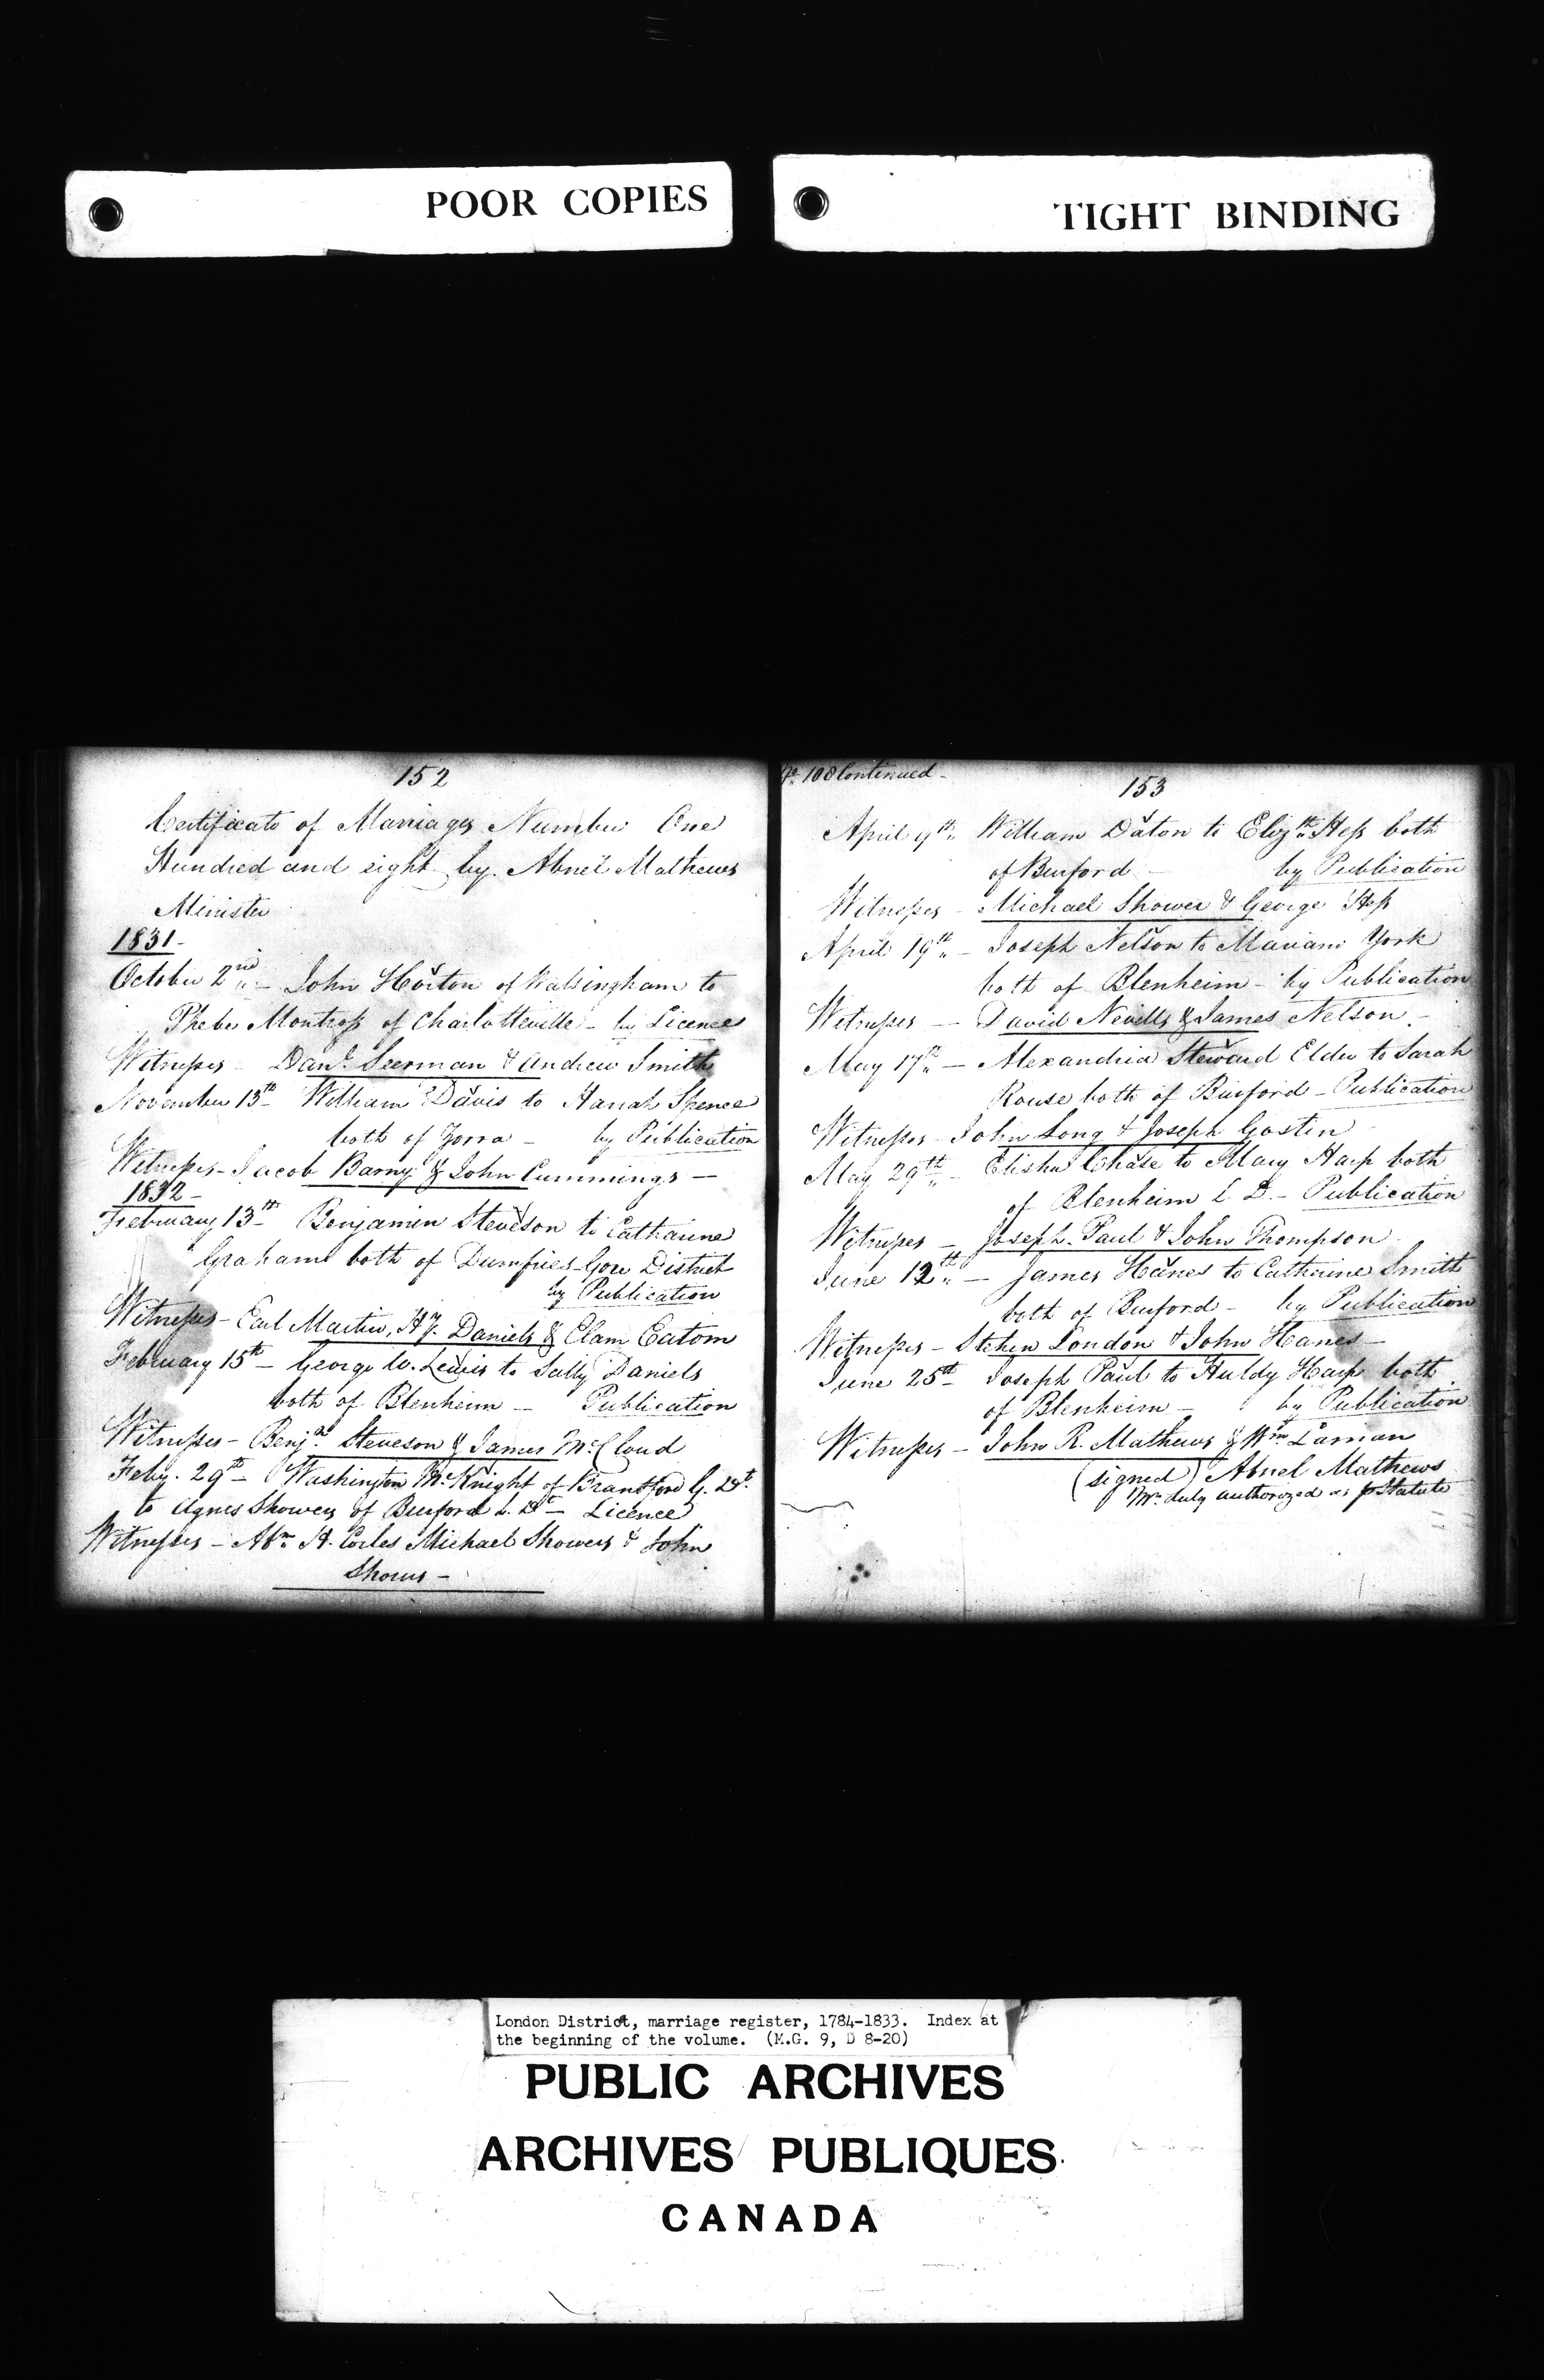 POOR COPIES
TIGHT BINDING
152
Certificate of Marriages Number One
Hundred and eight by Abnel Mathews
Minister
1831-
October 2nd - John Horton of Walsingham to
Phebe Montross of Charlotteville - by Licence
Witnesses - Danl. Seerman & Andrew Smith
November 13th William Davis to Hanah Spence
both of Zorra - by Publication
Witnesses - Jacob Barny & John Cummings -
1832 -
February 13th Benjamin Steveson to Catharine
Graham both of Dumfries Gore District
by Publication
Witnesses - Earl Martin, Hy. Daniels & Elam Eatom
February 15th - George W. Lewis to Sally Daniels
both of Blenheim - Publication
Witnesses - Benjn. Steveson & James McCloud
Feby. 29th - Washington McKnight of Brantford G. Dt.
to Agnes Showers of Burford L. Dt - Licence
Witnesses - Abm. A. Corles Michael Showers & John
Showers -
No. 108 Continued -
153
April 9th William Daton to Elizth. Hess both
of Burford - by Publication
Witnesses - Michael Shower & George Hess
April 19th - Joseph Nelson to Mariam York
both of Blenheim - by Publication
Witnesses - David Nevills & James Nelson -
May 17th - Alexandria Steward Elder to Sarah
Rouse both of Burford - Publication
Witnesses - John Long & Joseph Gostin
May 29th - Elisha Chase to Mary Harp both
of Blenheim L D. - Publication
Witnesses - Joseph Paul & John Thompson
June 12th - James Hanes to Catharine Smith
both of Burford - by Publication
Witnesses - Stehen London & John Hanes -
June 25th Joseph Paul to Huldy Harp both
of Blenheim - by Publication
Witnesses - John R. Mathews & Wm. Laman
(signed) Abnel Mathews
Mr. duly authorized as p Statute
London District, marriage register, 1784-1833. Index at
the beginning of the volume. (M.G. 9, D 8-20)
PUBLIC ARCHIVES
ARCHIVES PUBLIQUES
CANADA